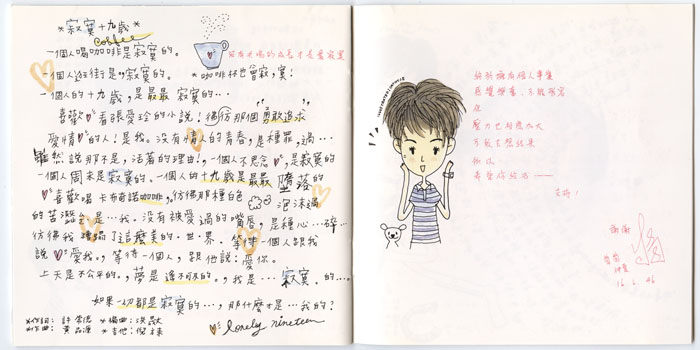 *寂寞十九歲*
coffee
一個人喝咖啡是寂寞的。
一個人逛街是寂寞的。
*咖啡杯也曾寂寞!
一個人的十九歲,是最最寂寞的…
喜歡看張愛玲的小說!彷彿那個勇敢追求
愛情的人!是我。沒有情人的青春,是種罪過…
雖然說那不是活著的理由!一個人不思念是寂寞的
一個人周末是寂寞的。一個人的十九歲是最最墮落的
喜歡喝卡布奇諾咖啡,彷彿那種白色泡沫過
的苦澀會是…我。沒有被愛過的嘴唇,是種心…碎…
彷彿我糟蹋了這麼美的世界。等待一個人跟我
說愛我。等待一個人,跟他說:愛你。
上天是不公平的。夢是遙不可及的。我是…寂寞的…。
如果一切都是寂寞的…,那什麼才是…我的?
*作詞:許常德 *編曲:洪
*作曲:黃品源 *吉他:倪
lonely nineteen
終於擁有個人專集
但
壓力也相對加大
希望你能
謝謝